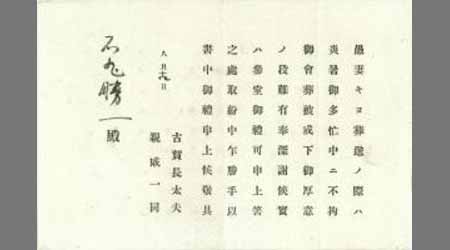 愚妻キヨ葬送ノ際ハ
炎暑御多忙中ニ不拘
御會葬被成下御厚意
ノ段難有奉深謝候實
ハ參堂御禮可申上筈
之處取紛中乍勝手以
書中御禮申上候敬具
八月十九日
古賀長太夫
親戚一同
石丸勝一殿